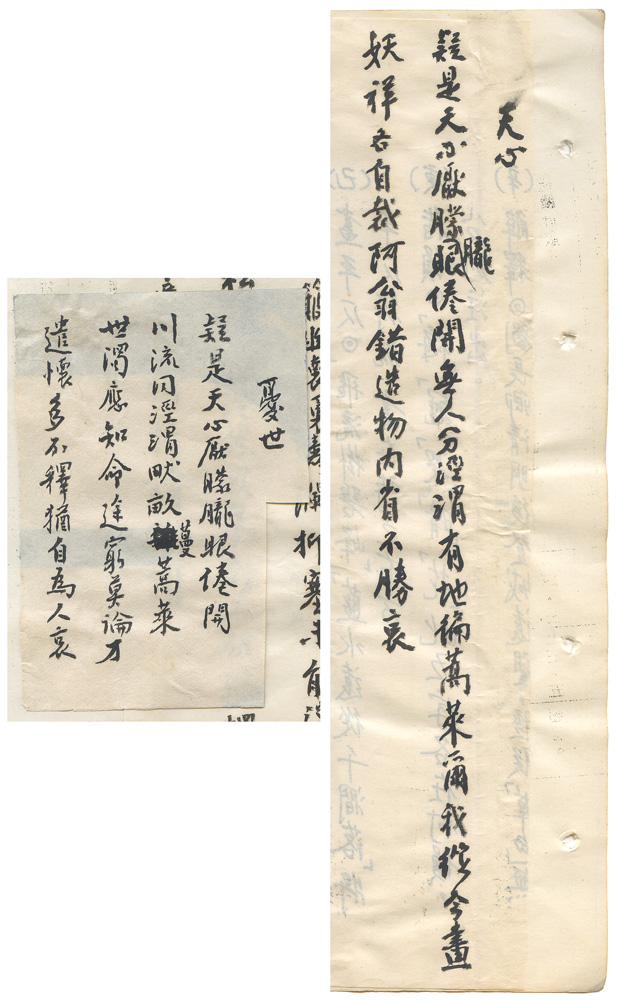 天心
疑是天心厭朦朧眼倦開無人分涇渭有地徧蒿萊爾我從今畫
妖祥各自裁阿翁錯造物內省不勝哀
憂世
疑是天心厭朦朧眼倦開
川流同涇渭畎畝蔓蒿萊
世濁應知命途窮莫論才
遣懷多不釋猶自為人哀